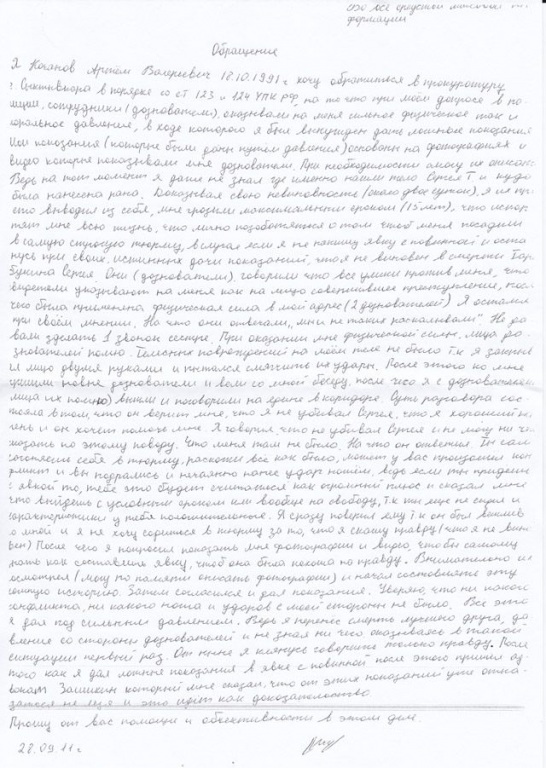 во все средства массовой ин-
формации
Обращение
Я Каканов Артём Валерьевич 18.10.1991 г хочу обратиться в прокуратуру
г. Сыктывкара в порядке со ст 123 и 124 УПК РФ, на то что при моём допросе в по-
лиции, сотрудники (дознователи), оказывали на меня сильное физическое так и
моральное давление, в ходе которого я был вынужден дать ложные показания
Им показания (которые были даны путём давления) основаны на фотографиях и
видео которые показывали мне дознователи. При необходимости могу их описать.
Ведь на тот момент я даже не знал где именно нашли тело Сергея Т и куда
была нанесена рана. Доказывая свою невиновность (около двое суток), я их про-
сто выводил из себя, мне грозили максимальным сроком (15 лет), что испор-
тят мне всю жизнь, что лично позаботятся о том чтоб меня посадили
в самую строгую тюрьму, в случае если я не напишу явку с повинной и оста-
нусь при своих, истинных дачи показаний, что я не виновен в смерти
Сергея. Они (дознователи) говорили что все улики против меня, что
указывают на меня как на лицо совершившее преступление, пос-
чего была применена физическая сила в мой адрес (2 дознователей). Я остался
при своём мнении. На что они отвечали „мы не таких раскалывали". Не да-
вали зделать 1 звонок сестре. При оказании мне физической силы, лица до-
знователей помню. Телесных повреждений на моём теле не было т.к я закрыв
лицо двумя руками и пытался смягчить их удары. После этого ко мне
дознователи и вели со мной беседу, после чего я с дознователем
(лица их помню) вышли и поговорили на едине в коридоре. Суть разговора сос-
тояла в том, что он верит мне, что я не убивал Сергея, что я хороший па-
рень и он хочет помочь мне. Я говорил что не убивал Сергея и не могу ни че
сказать по этому поводу. Что меня там не было. На что он ответил Ты сам
себя в тюрьму, расскажи всё как было, может у вас произошёл кон-
фликт и вы подрались и нечаянно нанёс удар ножом, ведь если ты придёшь
с явкой то, тебе это будет считаться как огромный плюс и сказал мне
что выйдешь с условным сроком или вообще на свободу, т.к ты ещё не сидел и
характеристики у тебя положительные. Я сразу поверил ему т.к он был вежлив
со мной и я не хочу садиться в тюрьму за то, что я скажу правду (что я не вино-
вен) После чего я попросил показать мне фотографии и видео, чтобы самому
знать как составлять явку, чтоб она была похожа на правду. Внимательно их
осмотрел (могу по памяти описать фотографии) и начал составлять эту
историю. Затем согласился и дал показания. Уверяю, что ни какого
конфликта, ни какого ножа и ударов с моей стороны не было. Всё это
я дал под сильным давлением. Ведь я перенёс смерть лучшего друга, да-
вление со стороны дознователей и не зная ни чего оказываясь в такой
ситуации первый раз. От ныне я клянусь говорить только правду. После
того как я дал ложные показания в явке с повинной после этого пришёл ад-
вокат который мне сказал, что от этих показаний уже отка-
заться не льзя и это идёт как доказательство
Прошу от вас помощи и объективности в этом деле.
28.09.11 г